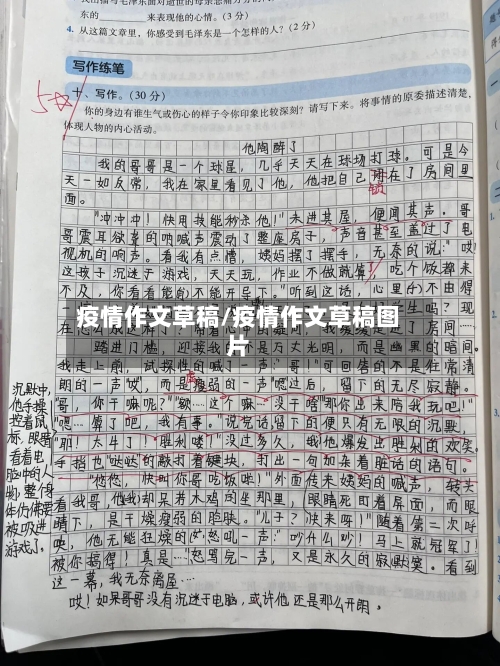 东的________来表现他的心情。(3分)
4. 从这篇文章里，你感受到毛泽东是一个怎样的人？(2分)
写作练笔
十、写作。(30分)
你的身边有谁生气或伤心的样子令你印象比较深刻？请写下来。将事情的原委描述清楚，
体现人物的内心活动。
他陶醉了
我的哥哥是一个球星，几乎天天在球场打球。可是今
天一如反常，我在家里看见了他，他把自己锁在了房间里
面。
"冲冲冲！快用技能秒杀他！"未进其屋，便闻其声。哥
哥震耳欲聋的呐喊声震动了整座房子，声音甚至盖过了电
视机的响声。看我有点懵，姨妈摆了摆手，无奈的说："哎！
这孩子沉迷于游戏，天天玩，作业不做就算，吃个饭都来
不及，你看看能否不能开导下。"听到这话，心里不由得
疫情作文草稿/疫情作文草稿图
片
踏进门槛，迎接我的不是方大光明，而是幽黑的暗间。
我走上前，试探性的喊了一声："哥！"可回答的不是往常清
朗的一声"哎"，而是瘦弱的一声"嗯"过后，留下的无尽寂静。
"哥，你干嘛呢？""额……这个嘛……没干啥""那你出来陪我玩吧！"
"嗯……算了吧，我有事。"说完话留下的便只有无限的沉默。
"耶！太牛了！胜利喽！"没过多久，我他爆发出胜利的欢笑。
手指也"哒哒"的敲打着键块，打出一句加杂着脏话的语句。
"彪彪，快叫你哥吃饭咪！"外面传来姨妈的喊声，转头
看我哥，他我却呆若木鸡的坐那里，眼睛死盯着屏面，而眼
睛下，是干燥瘦弱的脸肤。"儿子？快来呀！"随着第二次呼
唤，他无能狂燥的怒吼一声："吵什么吵！马上就冠军了
被你搞得！真是……"怒骂完一声，又是永久的寂默哭。看到
这一幕，我无奈离屋……
哎！如果哥哥没有沉迷于电脑，或许他还是那么开朗。
沉默中，
他手操
控着鼠
标，眼睛
看着电
脑中的人
物，整个身
体仿佛要
被吸进
游戏了。